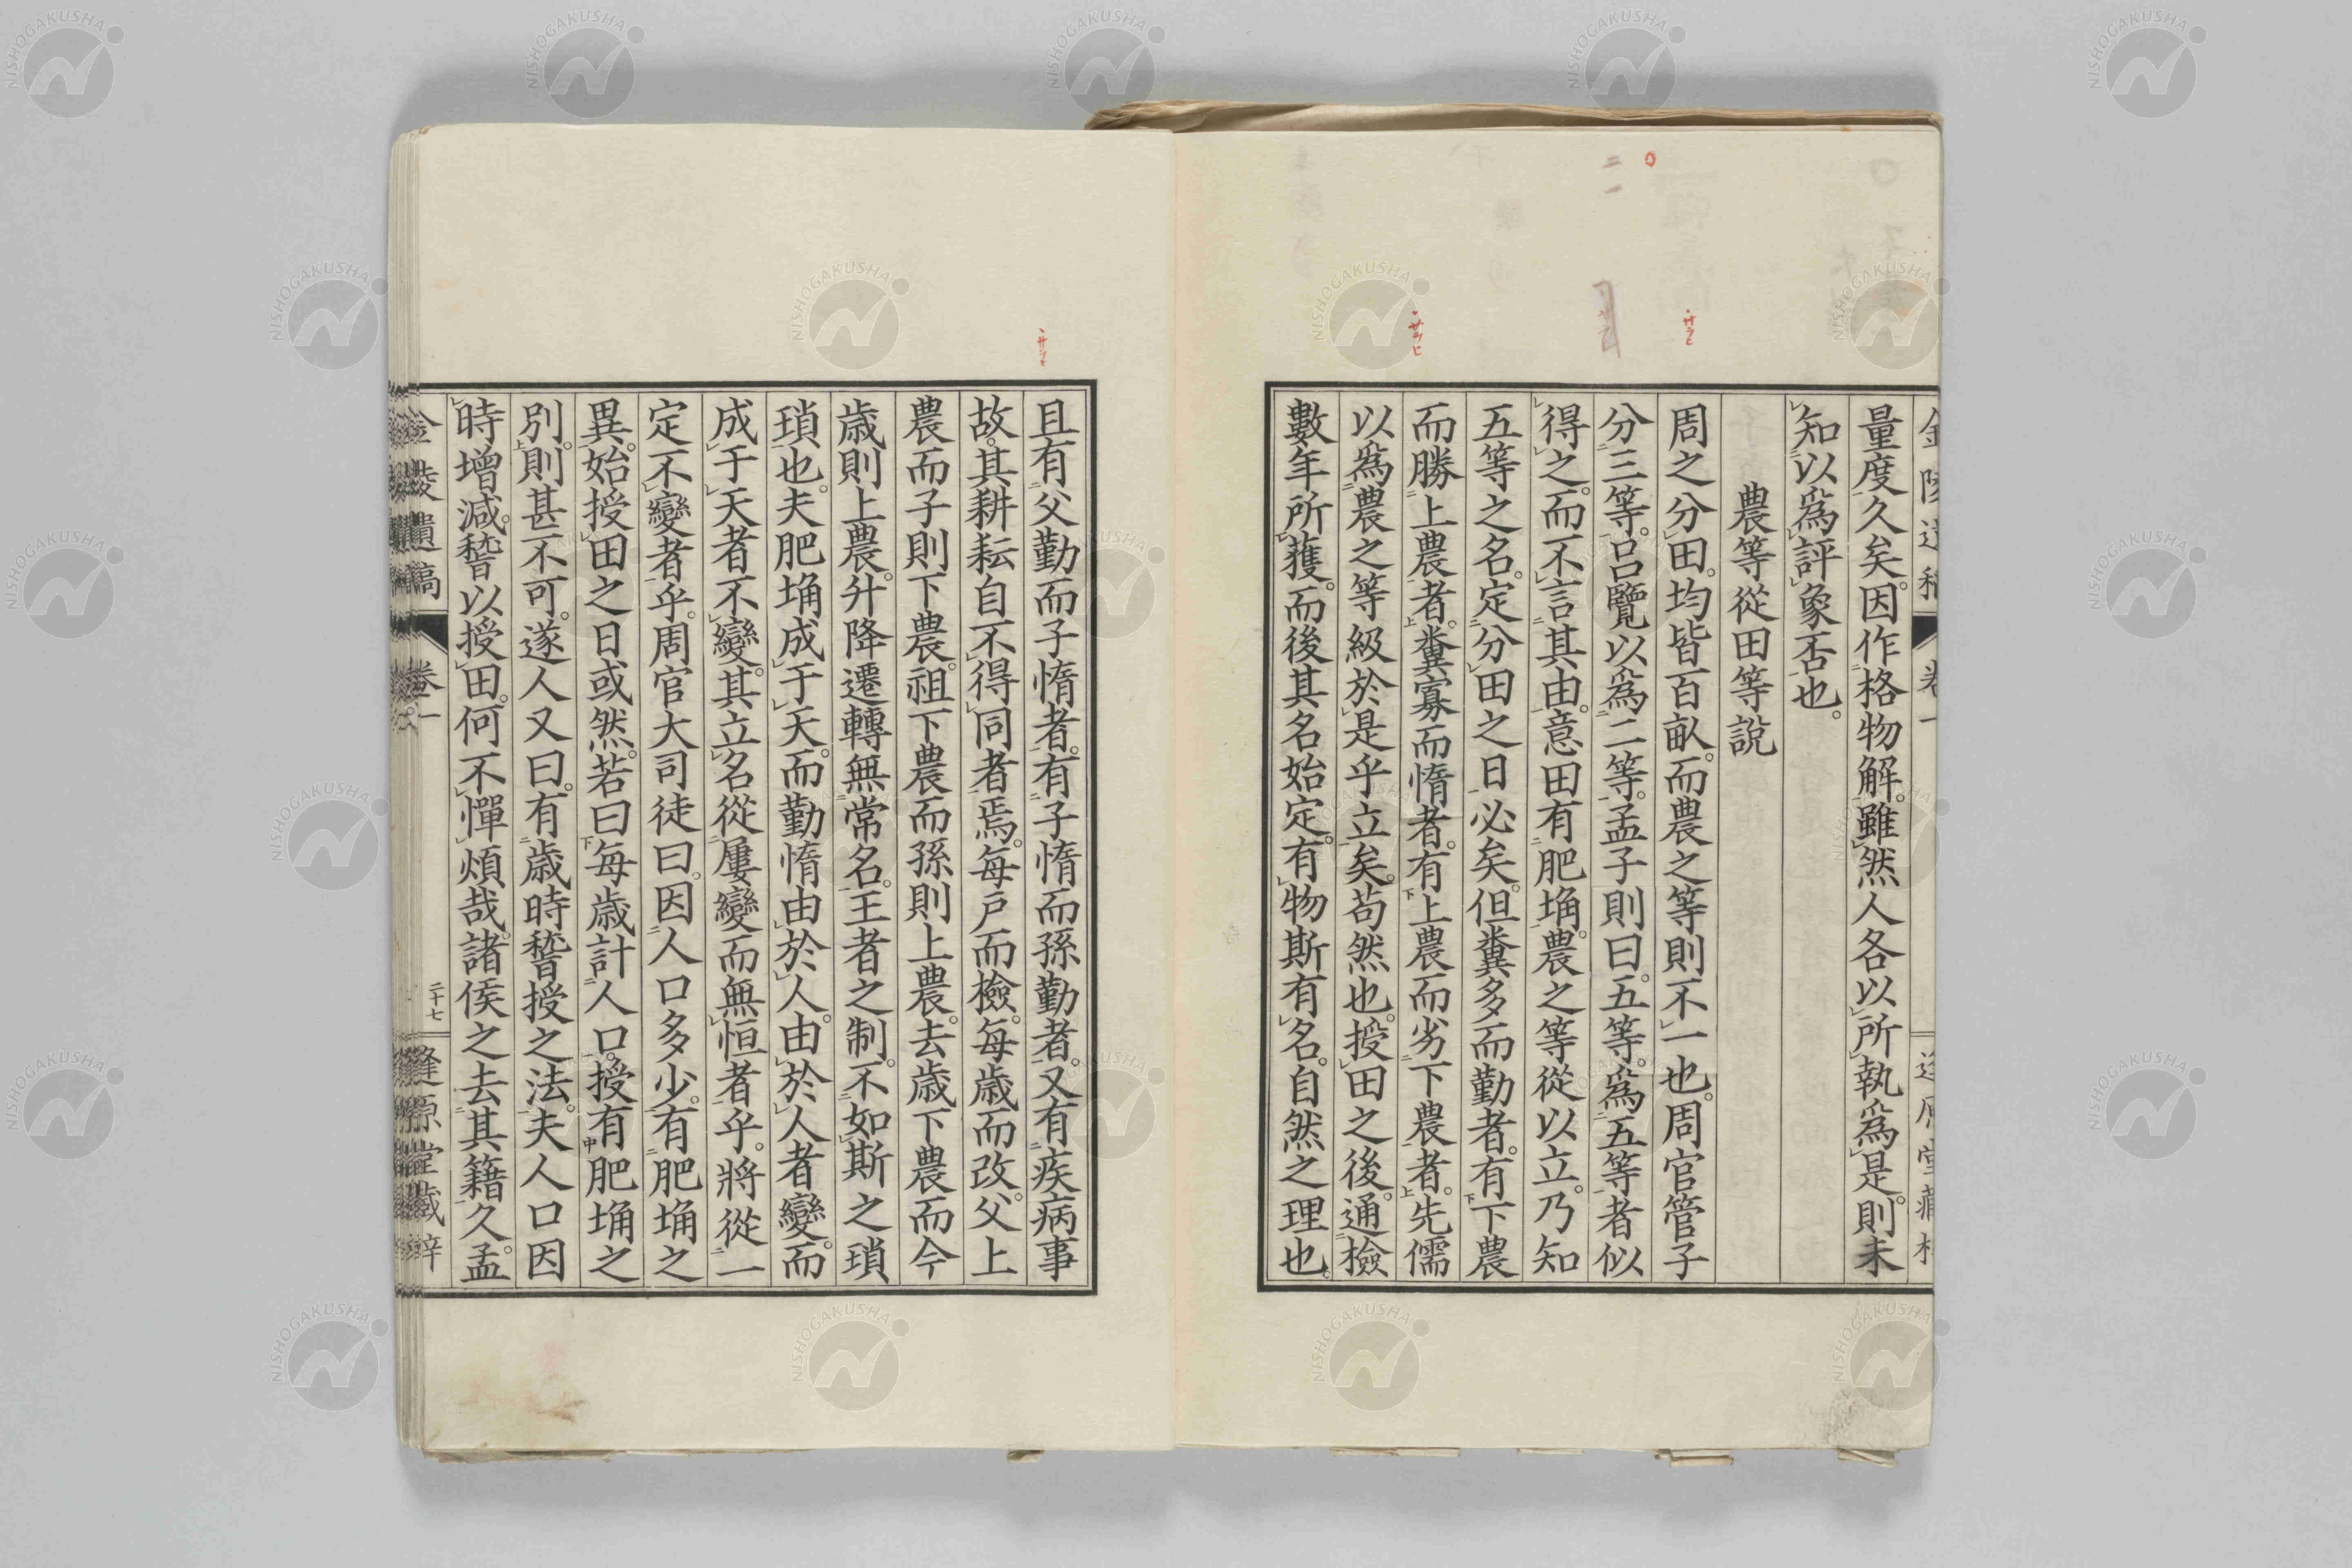 量度久矣。因作格物解。雖然人各以所執爲是。則未
知以爲評象否也。
農等從田等説
周之分田。均皆百畝。而農之等則不一也。周官管子
分三等。呂覽以爲二等。孟子則曰。五等。爲五等者似
得之。而不言其由。意田有肥埆。農之等從以立。乃知
五等之名。定分田之日必矣。但糞多而勤者。有下農
而勝上農者。糞寡而惰者。有上農而劣下農者。先儒
以爲農之等級於是乎立矣。苟然也。授田之後。通檢
數年所獲。而後其名始定。有物斯有名。自然之理也。
且有父勤而子惰者。有子惰而孫勤者。又有疾病事
故。其耕耘自不得同者焉。毎戸而檢。毎歳而改。父上
農而子則下農。祖下農而孫則上農。去歳下農而今
歳則上農。升降遷轉無常名。王者之制。不如斯之瑣
瑣也。夫肥埆成于天。而勤惰由於人。由於人者變。而
成于天者不變。其立名從屢變而無恒者乎。將從一
定不變者乎。周官大司徒曰。因人口多少。有肥埆之
異。始授田之日或然。若曰毎歳計人口。授有肥埆之
別。則甚不可。遂人又曰。有歳時稽授之法。夫人口因
時增減。稽以授田。何不憚煩哉。諸侯之去其籍久。孟
金陵遺稿 卷一 二十七 逢原堂藏梓